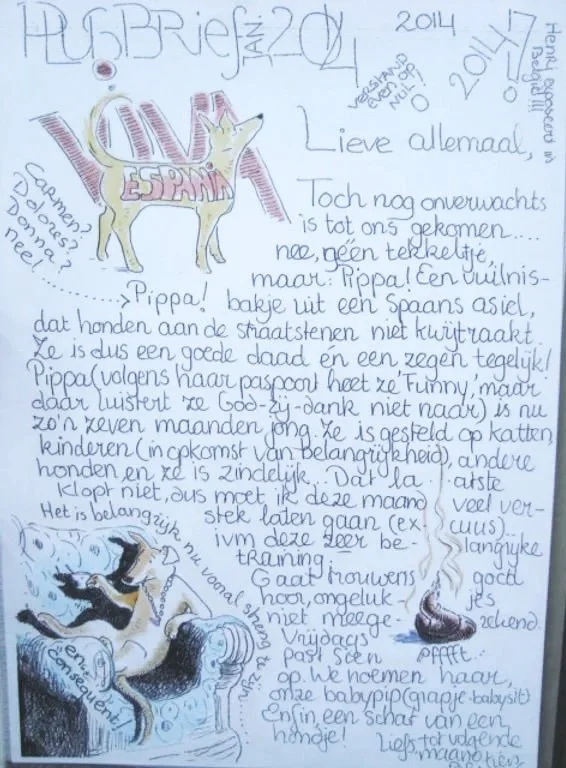 PLUGBRIEF JAN. 2014
2014
2014?!
Henry exposeert in
België!!!
VERSTAND
even op
NUL!
VIVA
ESPANIA
Lieve allemaal,
Carmen?
Dolores?
Donna?
nee!..........> Pippa!
Toch nog onverwachts
is tot ons gekomen....
nee, géén tekkeltje,
maar: Pippa! Een vuilnis-
bakje uit een Spaans asiel,
dat honden aan de straatstenen niet kwijtraakt.
Ze is dus een goede daad én een zegen tegelijk!
Pippa (volgens haar paspoort heet ze 'Funny', maar
daar luistert ze God-zij-dank niet naar) is nu
zo'n zeven maanden jong. Ze is gesteld op katten,
kinderen (in opkomst van belangrijkheid), andere
honden, en ze is zindelijk... Dat laatste
klopt niet, dus moet ik deze maand veel ver-
stek laten gaan (excuus)..
ivm deze zeer belangijke
training.
Gaat trouwens goed
hoor, ongelukjes
niet meegerekend.
Vrijdags pfffft..
past Sien
op. We noemen haar,
onze babypip (grapje-babysit)
Enfin, een schat van een
hondje!
Liefs, tot volgende
maand
Het is belangrijk nu vooral streng te zijn......
en...
consequent!